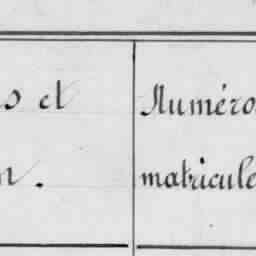 et Numéro
matricule